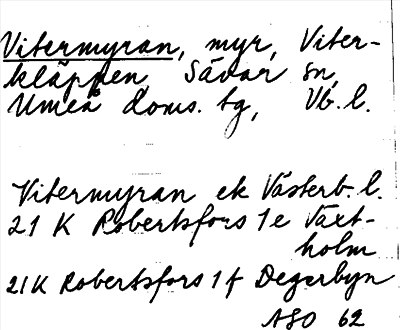 Vitermyran, myr, Viter-
kläppen Sävar sn,
Umeå doms. tg, Vb. l.
Vitermyran ek Västerb. l.
21 K Robertsfors 1 e Växt-
holm
21 K Robertsfors 1 f Degerbyn
ASO 62